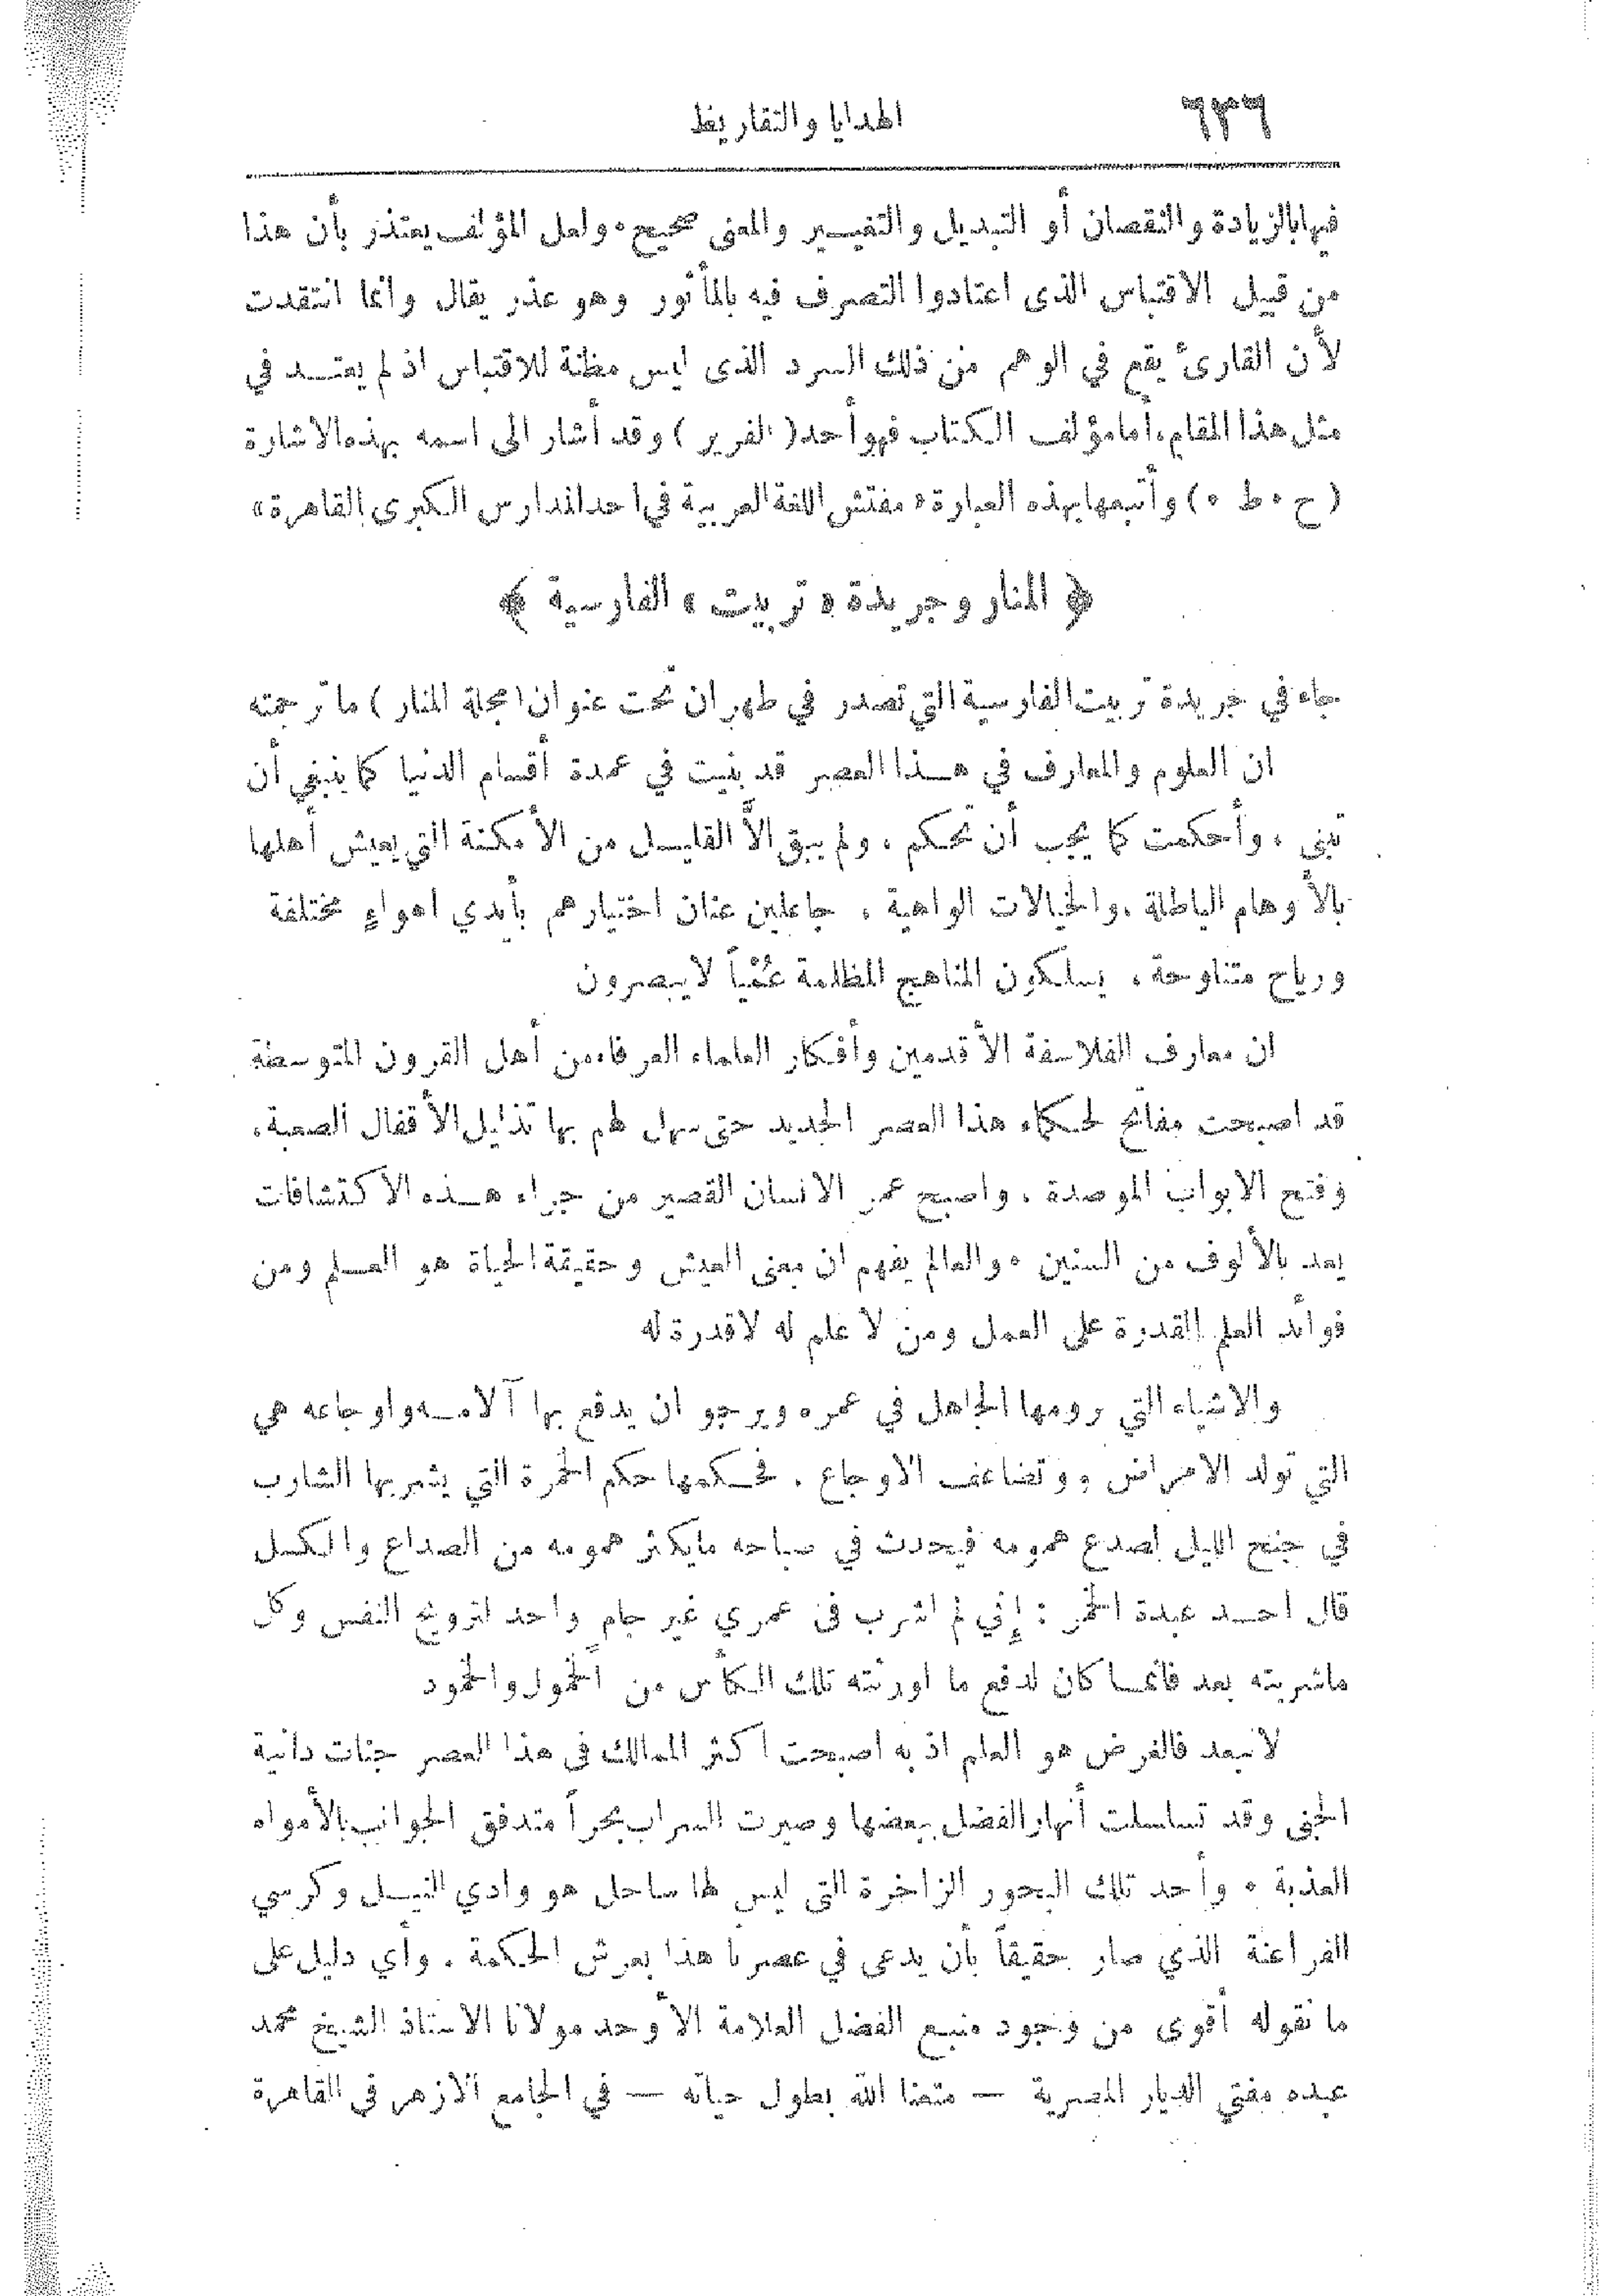 ٦٣٦
الهدايا والتقاريظ
فيها بالزيادة والنقصان أو التبديل والتغيير والمعنى صحيح ٠ ولعل المؤلف يعتذر بأن هذا
من قبيل الاقتباس الذى اعتادوا التصرف فيه بالمأثور وهو عذر يقال وانما انتقدت
لأن القارئ يقع في الوهم من ذلك السرد الذى ليس مظنة للاقتباس اذ لم يعتــد في
مثل هذا المقام، أما مؤلف الكتاب فهو أحد (الفرير) وقد أشار الى اسمه بهذه الاشارة
(ح ٠ ط ٠) وأتبعها بهذه العبارة « مفتش اللغة العربية في احد المدارس الكبرى بالقاهرة »
﴿ المنار وجريدة « تربيت » الفارسية ﴾
جاء في جريدة تربيت الفارسية التي تصدر في طهران تحت عنوان (مجلة المنار) ما ترجمته
ان العلوم والمعارف في هــذا العصر قد بنيت في عمدة أقسام الدنيا كما ينبغي أن
تبنى ، وأحكمت كما يجب أن تحكم ، ولم يبق الاَّ القليــل من الأمكنة التي يعيش أهلها
بالأوهام الباطلة ، والخيالات الواهية ، جاعلين عنان اختيارهم بأيدي اهواءٍ مختلفة
ورياح متناوحة ، يسلكون المناهج المظلمة عُمْياً لا يبصرون
ان معارف الفلاسفة الأقدمين وأفكار العلماء العرفاء من أهل القرون المتوسطة
قد اصبحت مفاتح لحكماء هذا العصر الجديد حتى سهل لهم بها تذليل الأقفال الصعبة ،
وفتح الابواب الموصدة ، واصبح عمر الانسان القصير من جراء هــذه الاكتشافات
يعد بالألوف من السنين ٠ والعالم يفهم ان معنى العيش وحقيقة الحياة هو العــلم ومن
فوائد العلم القدرة على العمل ومن لا علم له لا قدرة له
والاشياء التي يرومها الجاهل في عمره ويرجو ان يدفع بها آلامــه واوجاعه هي
التي تولد الامراض ، وتضاعف الاوجاع . فحكمها حكم الخمرة التي يشربها الشارب
في جنح الليل لصدع همومه فيحدث في صباحه ما يكثر همومه من الصداع والكسل
قال احــد عبدة الخمر : إِني لم اشرب فى عمري غير جام واحد لترويح النفس وكل
ما شربته بعد فانمــا كان لدفع ما اورثته تلك الكأس من الخمول والخمود
لا نبعد فالغرض هو العلم اذ به اصبحت اكثر الممالك فى هذا العصر جنات دانية
الجنى وقد تسلسلت أنهار الفضل ببعضها وصيرت السراب بحراً متدفق الجوانب بالأمواه
العذبة ٠ وأحد تلك البحور الزاخرة التى ليس لها ساحل هو وادي النيــل وكرسي
الفراعنة الذي صار حقيقاً بأن يدعى في عصرنا هذا بعرش الحكمة . وأي دليل على
ما نقوله أقوى من وجود منبع الفضل العلامة الأوحد مولانا الاستاذ الشيخ محمد
عبده مفتي الديار المصرية — متعنا الله بطول حياته — في الجامع الازهر في القاهرة